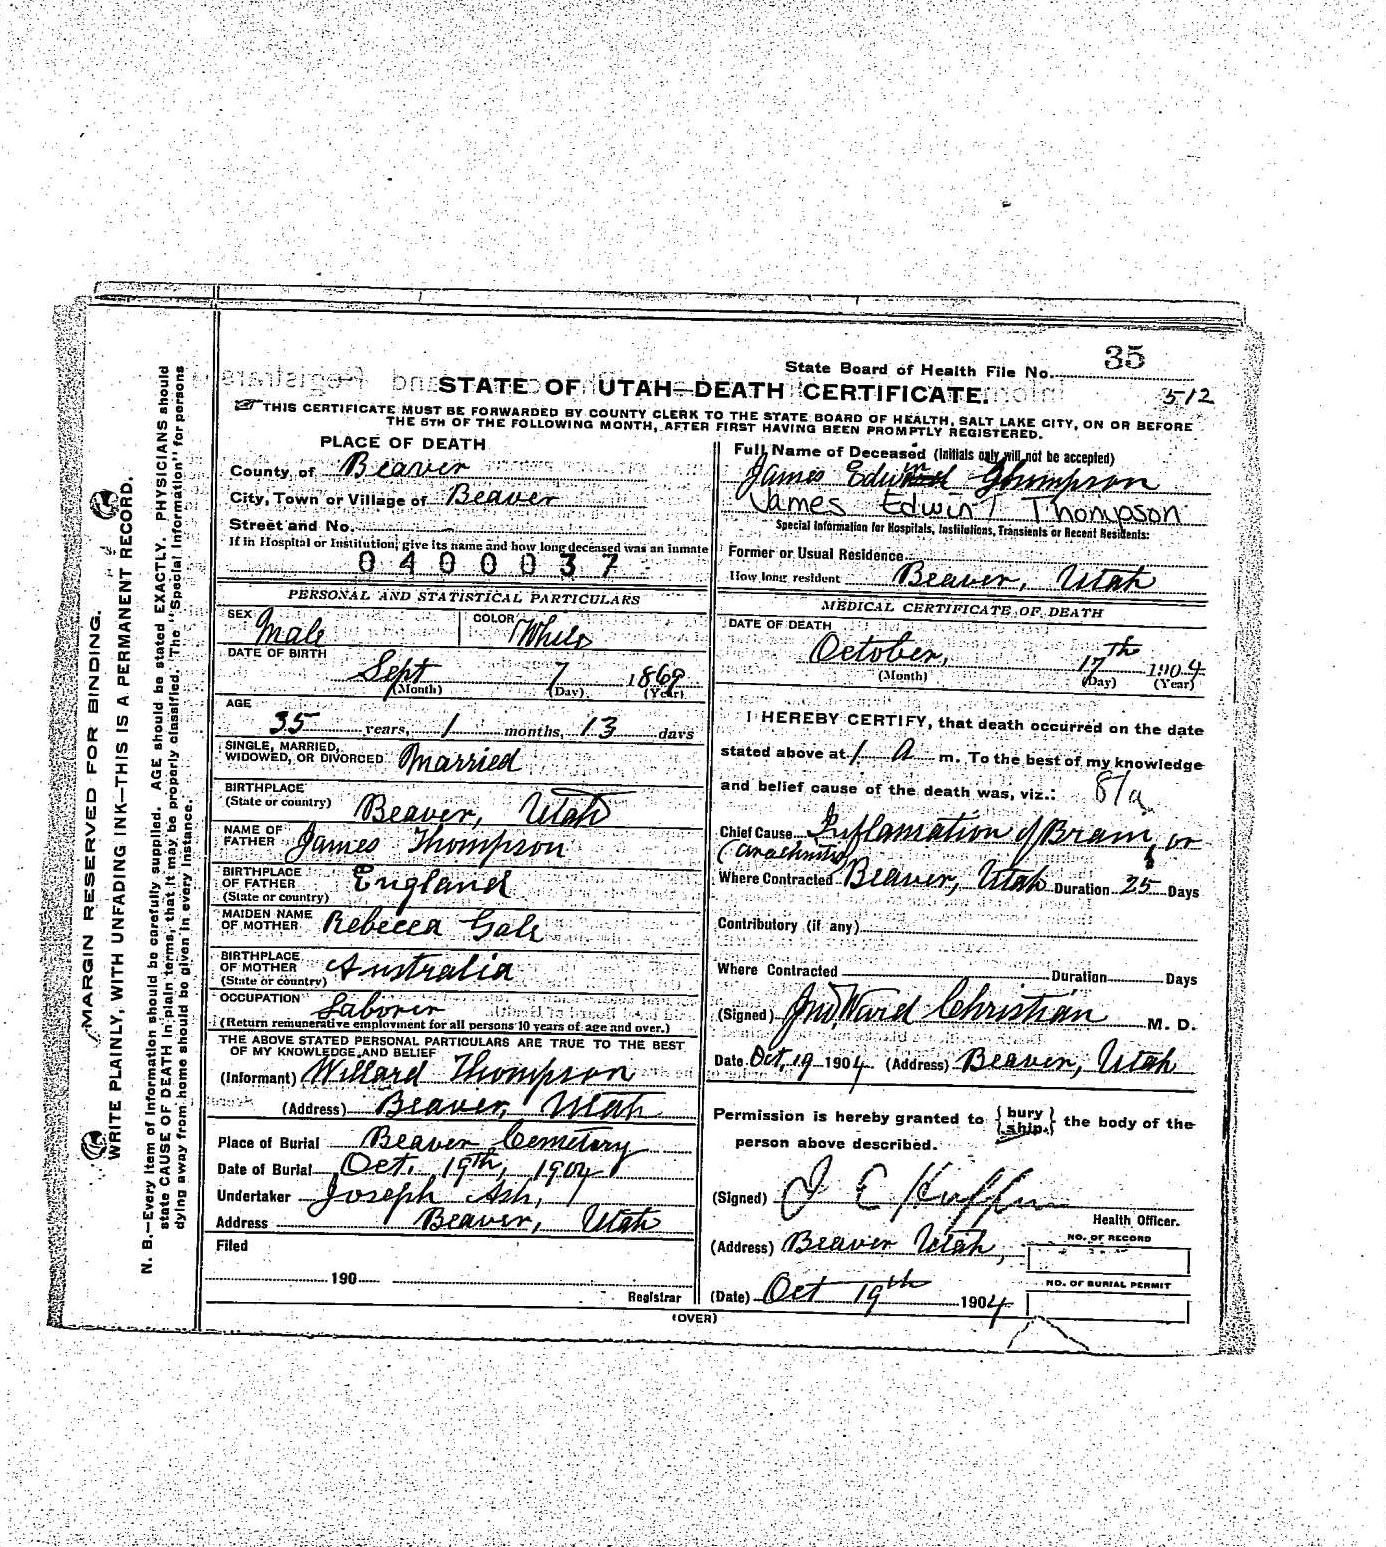 State Board of Health File No. 35
STATE OF UTAH—DEATH CERTIFICATE.
512
THIS CERTIFICATE MUST BE FORWARDED BY COUNTY CLERK TO THE STATE BOARD OF HEALTH, SALT LAKE CITY, ON OR BEFORE
THE 5TH OF THE FOLLOWING MONTH, AFTER FIRST HAVING BEEN PROMPTLY REGISTERED.
MARGIN RESERVED FOR BINDING.
WRITE PLAINLY, WITH UNFADING INK—THIS IS A PERMANENT RECORD.
N. B.—Every item of information should be carefully supplied. AGE should be stated EXACTLY. PHYSICIANS should
state CAUSE OF DEATH in plain terms, that it may be properly classified. The "Special Information" for persons
dying away from home should be given in every instance.
PLACE OF DEATH
County of Beaver
City, Town or Village of Beaver
Street and No.
If in Hospital or Institution, give its name and how long deceased was an inmate
0400037
PERSONAL AND STATISTICAL PARTICULARS
SEX Male COLOR White
DATE OF BIRTH
Sept 7 1869
(Month) (Day) (Year)
AGE
35 years, 1 months, 13 days
SINGLE, MARRIED,
WIDOWED, OR DIVORCED Married
BIRTHPLACE
(State or country) Beaver, Utah
NAME OF
FATHER James Thompson
BIRTHPLACE
OF FATHER England
(State or country)
MAIDEN NAME
OF MOTHER Rebecca Gale
BIRTHPLACE
OF MOTHER Australia
(State or country)
OCCUPATION Laborer
(Return remunerative employment for all persons 10 years of age and over.)
THE ABOVE STATED PERSONAL PARTICULARS ARE TRUE TO THE BEST
OF MY KNOWLEDGE AND BELIEF
(Informant) Willard Thompson
(Address) Beaver, Utah
Place of Burial Beaver Cemetery
Date of Burial Oct. 19th, 1904
Undertaker Joseph Ash,
Address Beaver, Utah
Filed
190
Registrar
Full Name of Deceased (Initials only will not be accepted)
James Edwin Thompson
James Edwin Thompson
Special Information for Hospitals, Institutions, Transients or Recent Residents:
Former or Usual Residence
How long resident Beaver, Utah
MEDICAL CERTIFICATE OF DEATH
DATE OF DEATH
October, 17th 1904
(Month) (Day) (Year)
I HEREBY CERTIFY, that death occurred on the date
stated above at 1 A m. To the best of my knowledge
and belief cause of the death was, viz.: 81a
Chief Cause Inflamation of Brain, or
(Arachnitis)
Where Contracted Beaver, Utah Duration 25 Days
Contributory (if any)
Where Contracted Duration Days
(Signed) Jno. Ward Christian M. D.
Date Oct, 19 1904 (Address) Beaver, Utah
Permission is hereby granted to { bury ship. } the body of the
person above described.
(Signed) J E
Health Officer.
(Address) Beaver Utah,
NO. OF RECORD
NO. OF BURIAL PERMIT
(Date) Oct 19th 1904
(OVER)